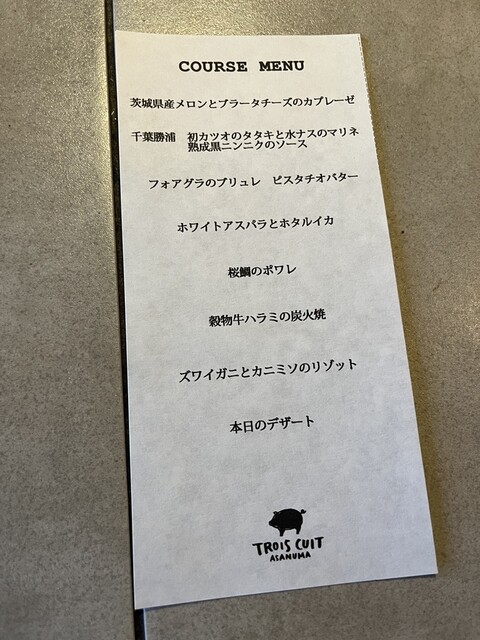 COURSE MENU
茨城県産メロンとブラータチーズのカプレーゼ
千葉勝浦　初カツオのタタキと水ナスのマリネ
熟成黒ニンニクのソース
フォアグラのブリュレ　ピスタチオバター
ホワイトアスパラとホタルイカ
桜鯛のポワレ
穀物牛ハラミの炭火焼
ズワイガニとカニミソのリゾット
本日のデザート
TROIS CUIT
ASANUMA